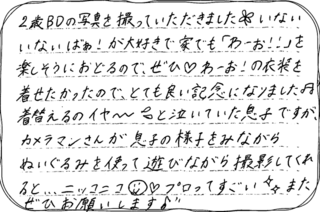 2歳BDの写真を撮っていただきました🎀いない
いないばぁ!が大好きで家でも「わーお!!」を
楽しそうにおどるので、ぜひ♡わーお!の衣装を
着せたかったので、とても良い記念になりました♬
着替えるのイヤ〜〜と泣いていた息子ですが、
カメラマンさんが息子の様子をみながら
ぬいぐるみを使って遊びながら撮影してくれ
ると…ニッコニコ☺♡プロってすごい☆☆また
ぜひお願いします♪"